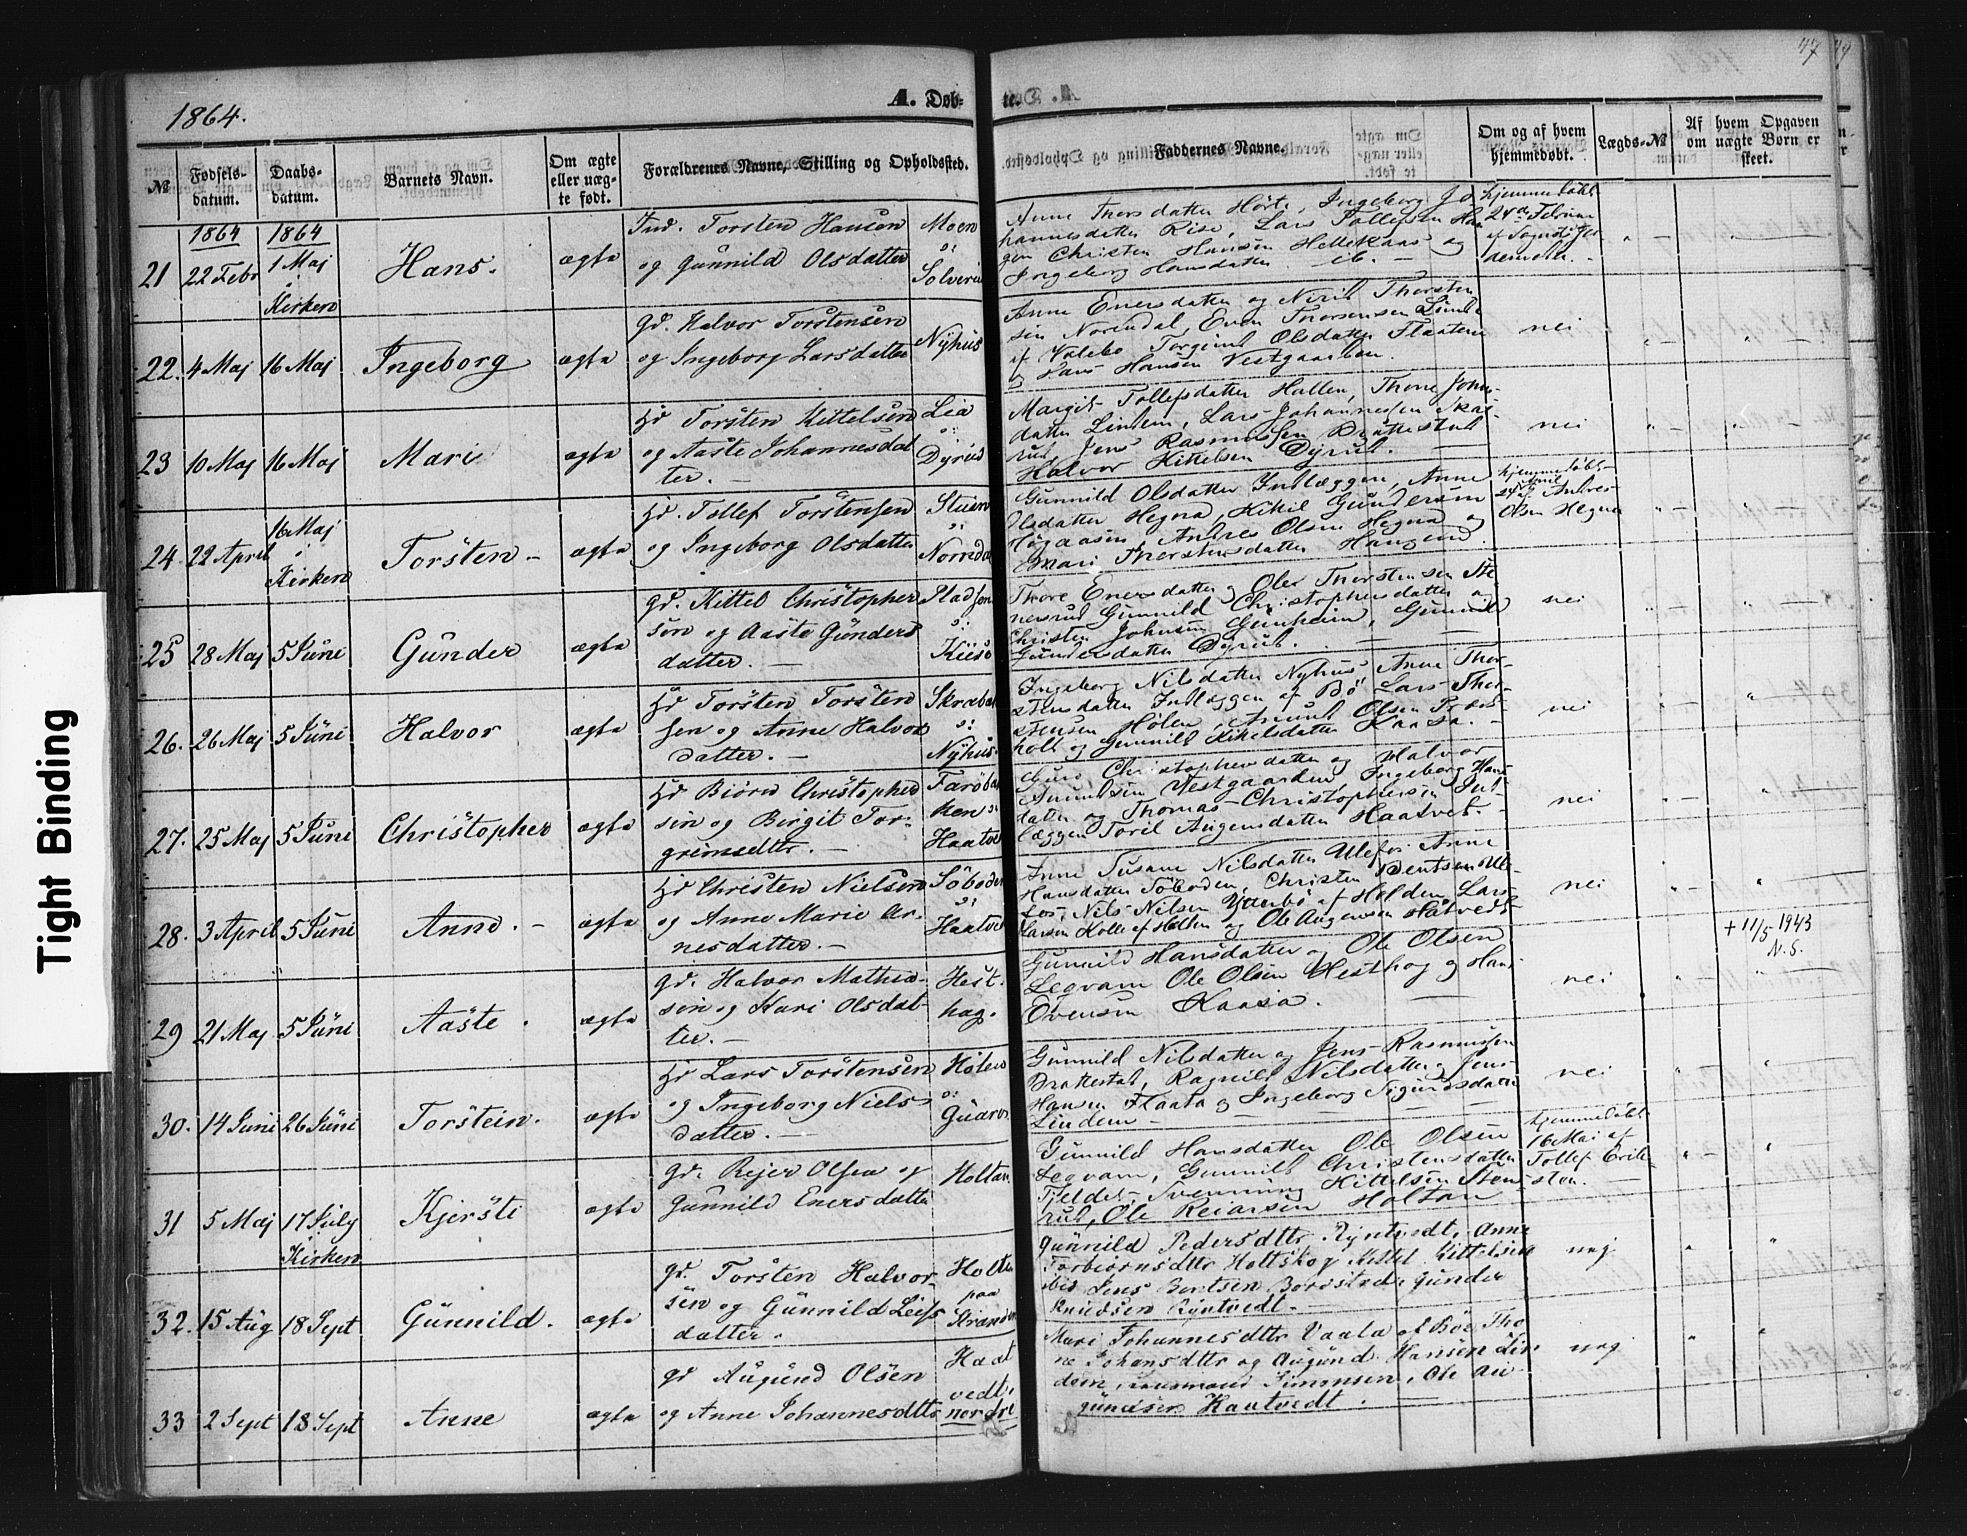 47
49
1864.
A. Døb-
te.
№
Fødsels-
datum.
Daabs-
datum.
Barnets Navn.
Om ægte
eller uæg-
te født.
Forældrenes Navne, Stilling og Opholdssted.
Faddernes Navne.
Om og af hvem
hjemmedøbt.
Lægds-№
Af hvem Opgaven
om uægte Børn er
skeet.
21
1864
22 Febr
1864
1 Maj
i
Kirken
Hans.
ægte
Ind. Torsten Hansen
og Gunnild Olsdatter
Moen
o:
Solverud
Anne Thorsdatter Hörte, Ingeborg Jo
hannesdatter Rise, Lars Tollefsen Haa
gen Christen Hansen Hellekaas og
Ingeborg Hansdatter - ib. -
hjemmedöbt
24de Februar
22.
4 Maj
16 Maj
Ingeborg
ægte
Gd. Halvor Torstensen
og Ingeborg Larsdatter
Nyhus
Anne Enersdatter og Nirid Thorsten
sen Norendal, Even Thorsensen Linde
af Valebo Torgund Olsdatter Flaaten
og Lars Hansen Vestgaarden.
nei
23
10 Maj
16 Maj
Mari
ægte
Hd Torsten Kittelsen
og Aaste Johannesdat
ter. -
Lia
o:
Dyrud
Margit Tollefsdatter Hallen, Thone Johns-
datter Lindem, Lars Johannessen Skaf-
rud, Jens Rasmussen Brattestad
Halvor Kittelsen Dyrud.
nei
24.
22 April
16 Maj
i
Kirken
Torsten -
ægte
Hd. Tollef Torstensen
og Ingeborg Olsdatter
Stuen
o:
Norreda
Gunnild Olsdatter Indlæggen, Anne
Olsdatter Hegna, Kikil Gundersen
Høgaasen, Andres Olsen Hegna og
Mari Thorstensdatter Haugen.
hjemmedöbt
24 April
af Andres
Olsen Hegna
25
28 Maj
5 Juni
Gunder
ægte
Gd. Kittel Christopher
sen og Aaste Gunders
datter. -
Pladsen
o:
Kiisö
Thore Enersdatter og Oler Thorstensen Ste
nersrud Gunnild Christophersdatter og
Christen Johnsen Grinheim, Gunnild
Gundersdatter Dyrud.
nei
26.
26 Maj
5 Juni
Halvor
ægte
Hd Torsten Torsten
sen og Anne Halvors
datter. -
Skræbek
o:
Nyhus
Ingeborg Nilsdatter Nyhus Anne Thor-
stensdatter Indlæggen af Bö Lars Thor-
stensen Hølen, Amund Olsen
holt og Gunnild Kikelsdatter Kaasa. -
nei
27.
25 Maj
5 Juni
Christopher
ægte
Hd Biörn Christopher
sen og Birgit Tor-
grimsdtter. -
Faröbak
ken o:
Haatve
Guro Christophersdatter og Halvor
Amundsen Vestgaarden Ingeborg Hans
datter og Thomas Christophersen Ind
læggen Toril Augensdatter Haatvet. -
nei
28.
3 April
5 Juni
Anne. -
ægte
Hd Christen Nielsen
og Anne Marie Ar-
nesdatter. -
Söboden
o:
Haatve
Anne Susane Nilsdatter Ulefos Anne
Hansdatter Söboden, Christen Bentsen Ule
fos, Nils Nilsen Ytterbö af Holden, Lars
Larsen Kolle af Holden og Ole Augensen Hatvedt
nei
29
21 Maj
5 Juni
Aaste.
ægte
Gd. Halvor Mathia-
sen og Kari Olsdat-
ter. -
Hest-
hag.
Gunnild Hansdatter og Ole Olsen
Legvam Ole Olsen Hesthag og Hans
Evensen Kaasa. -
nei
+ 11/5 1943
N. S.
30.
14 Juni
26 Juni
Torstein.
ægte
Hd Lars Torstensen
og Ingeborg Niels
datter. -
Hölen
o:
Guaro
Gunnild Nilsdatter og Jens Rasmussen
Brattestad, Ragnild Nilsdatter og Jens
Hansen Flaata og Ingeborg Sigurdsdatter
Lindem -
nei
31
5 Maj
17 July
Kirken
Kjersti
ægte
Gd. Rejer Olsen og
Gunnild Enersdatter
Holtan
Gunnild Hansdatter Ole Olsen
Legvam, Gunnild Christensdatter
Fjeldet, Svenning Kittelsen Stens
rud, Ole Reiarsen Holtan
hjemmedöbt
16 Mai af
Tollef Erik-
sten.
32.
15 Aug
18 Sept
Gunnild.
ægte
Gd. Torsten Halvor
sen og Gunnild Leifs
datter.
Holte
paa
Stranden
Gunnild Pedersdttr Ryntvedt, Anne
Torbiörnsdttr Holtskog Kittel Kittelsen
ibid Jens Bentsen Borrestad, Gunder
Knudsen Ryntvedt. -
nej
33
2 Sept
18 Sept
Anne
ægte
Gd Augund Olsen
og Anne Johannesdttr
Haat
vedt,
nordre
Mari Johannesdttr Vaala af Böe, Tho
ne Johansdttr og Augund Hansen Lin
dem, Simonsen, Ole Au
gundsen Haatvedt.
nej
Tight Binding